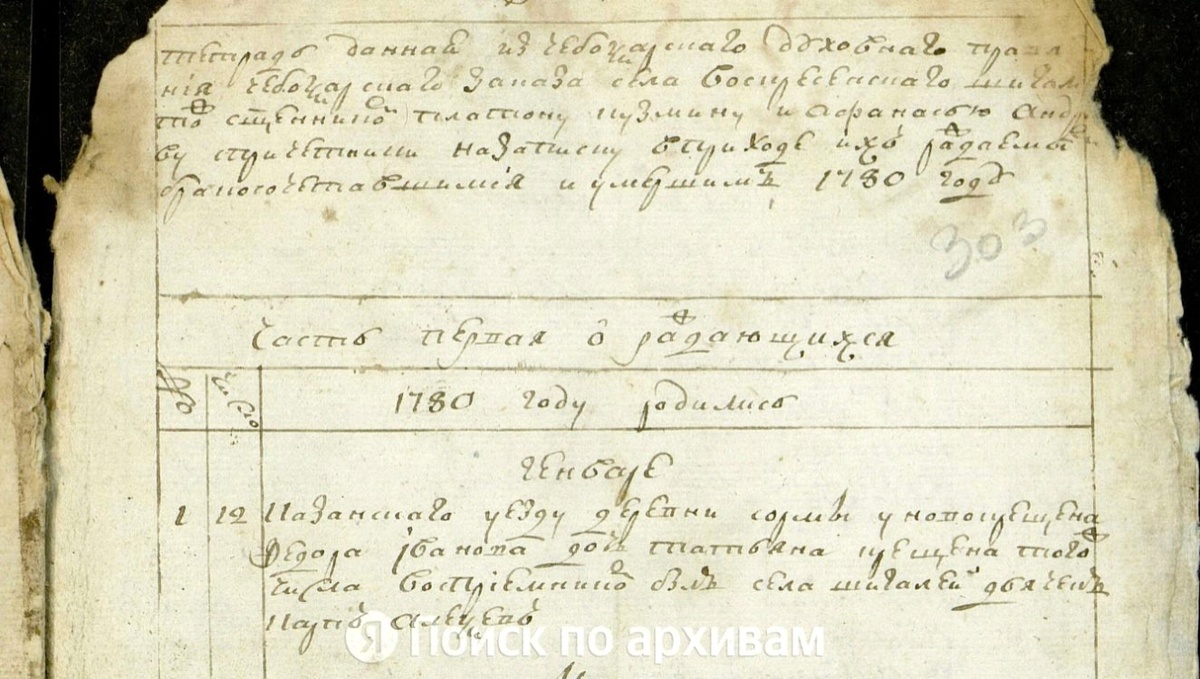 тетрадь данная из чебоксарскаго духовнаго правле
нія чебоксарскаго заказа села воскресенскаго шигали
то священнико платону кузмину и афанасью андре
ву с причетники на записку в приходе ихъ раждаемы
бракосочетавшимся и умершимъ 1780 годъ
303
часть первая о раждающихся
число
1780 году родились
генваре
1 12 казанскаго уезду деревни сормы у новокрещена
федора іванова дочь татьяна крещена того
числа воспріемнико былъ села шигалей дьячекъ
Поиск по архивам